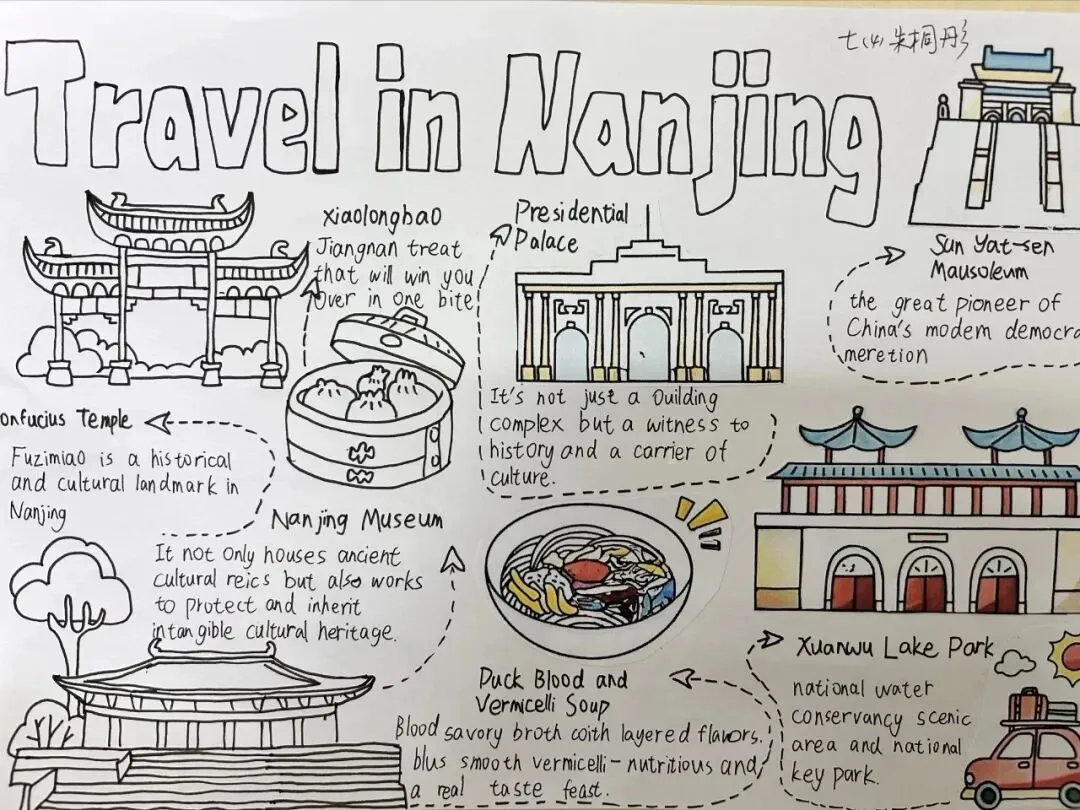 Travel in Nanjing
七(4) 朱桐彤
xiaolongbao
Jiangnan treat
that will win you
over in one bite
Presidential
Palace
It's not just a Ouilding
complex but a witness to
history and a carrier of
culture.
Sun Yat-sen
Mausoleum
the great pioneer of
China's modem democra
meretion
onfucius Temple
Fuzimiao is a historical
and cultural landmark in
Nanjing
Nanjing Museum
It not only houses ancient
cultural reics but also works
to protect and inherit
intangible cultural heritage.
Duck Blood and
Vermicelli Soup
Blood savory broth with layered flavors.
blus smooth vermicelli-nutritious and
a real taste feast.
Xuanwu Lake Park
national water
conservancy scenic
area and national
key park.